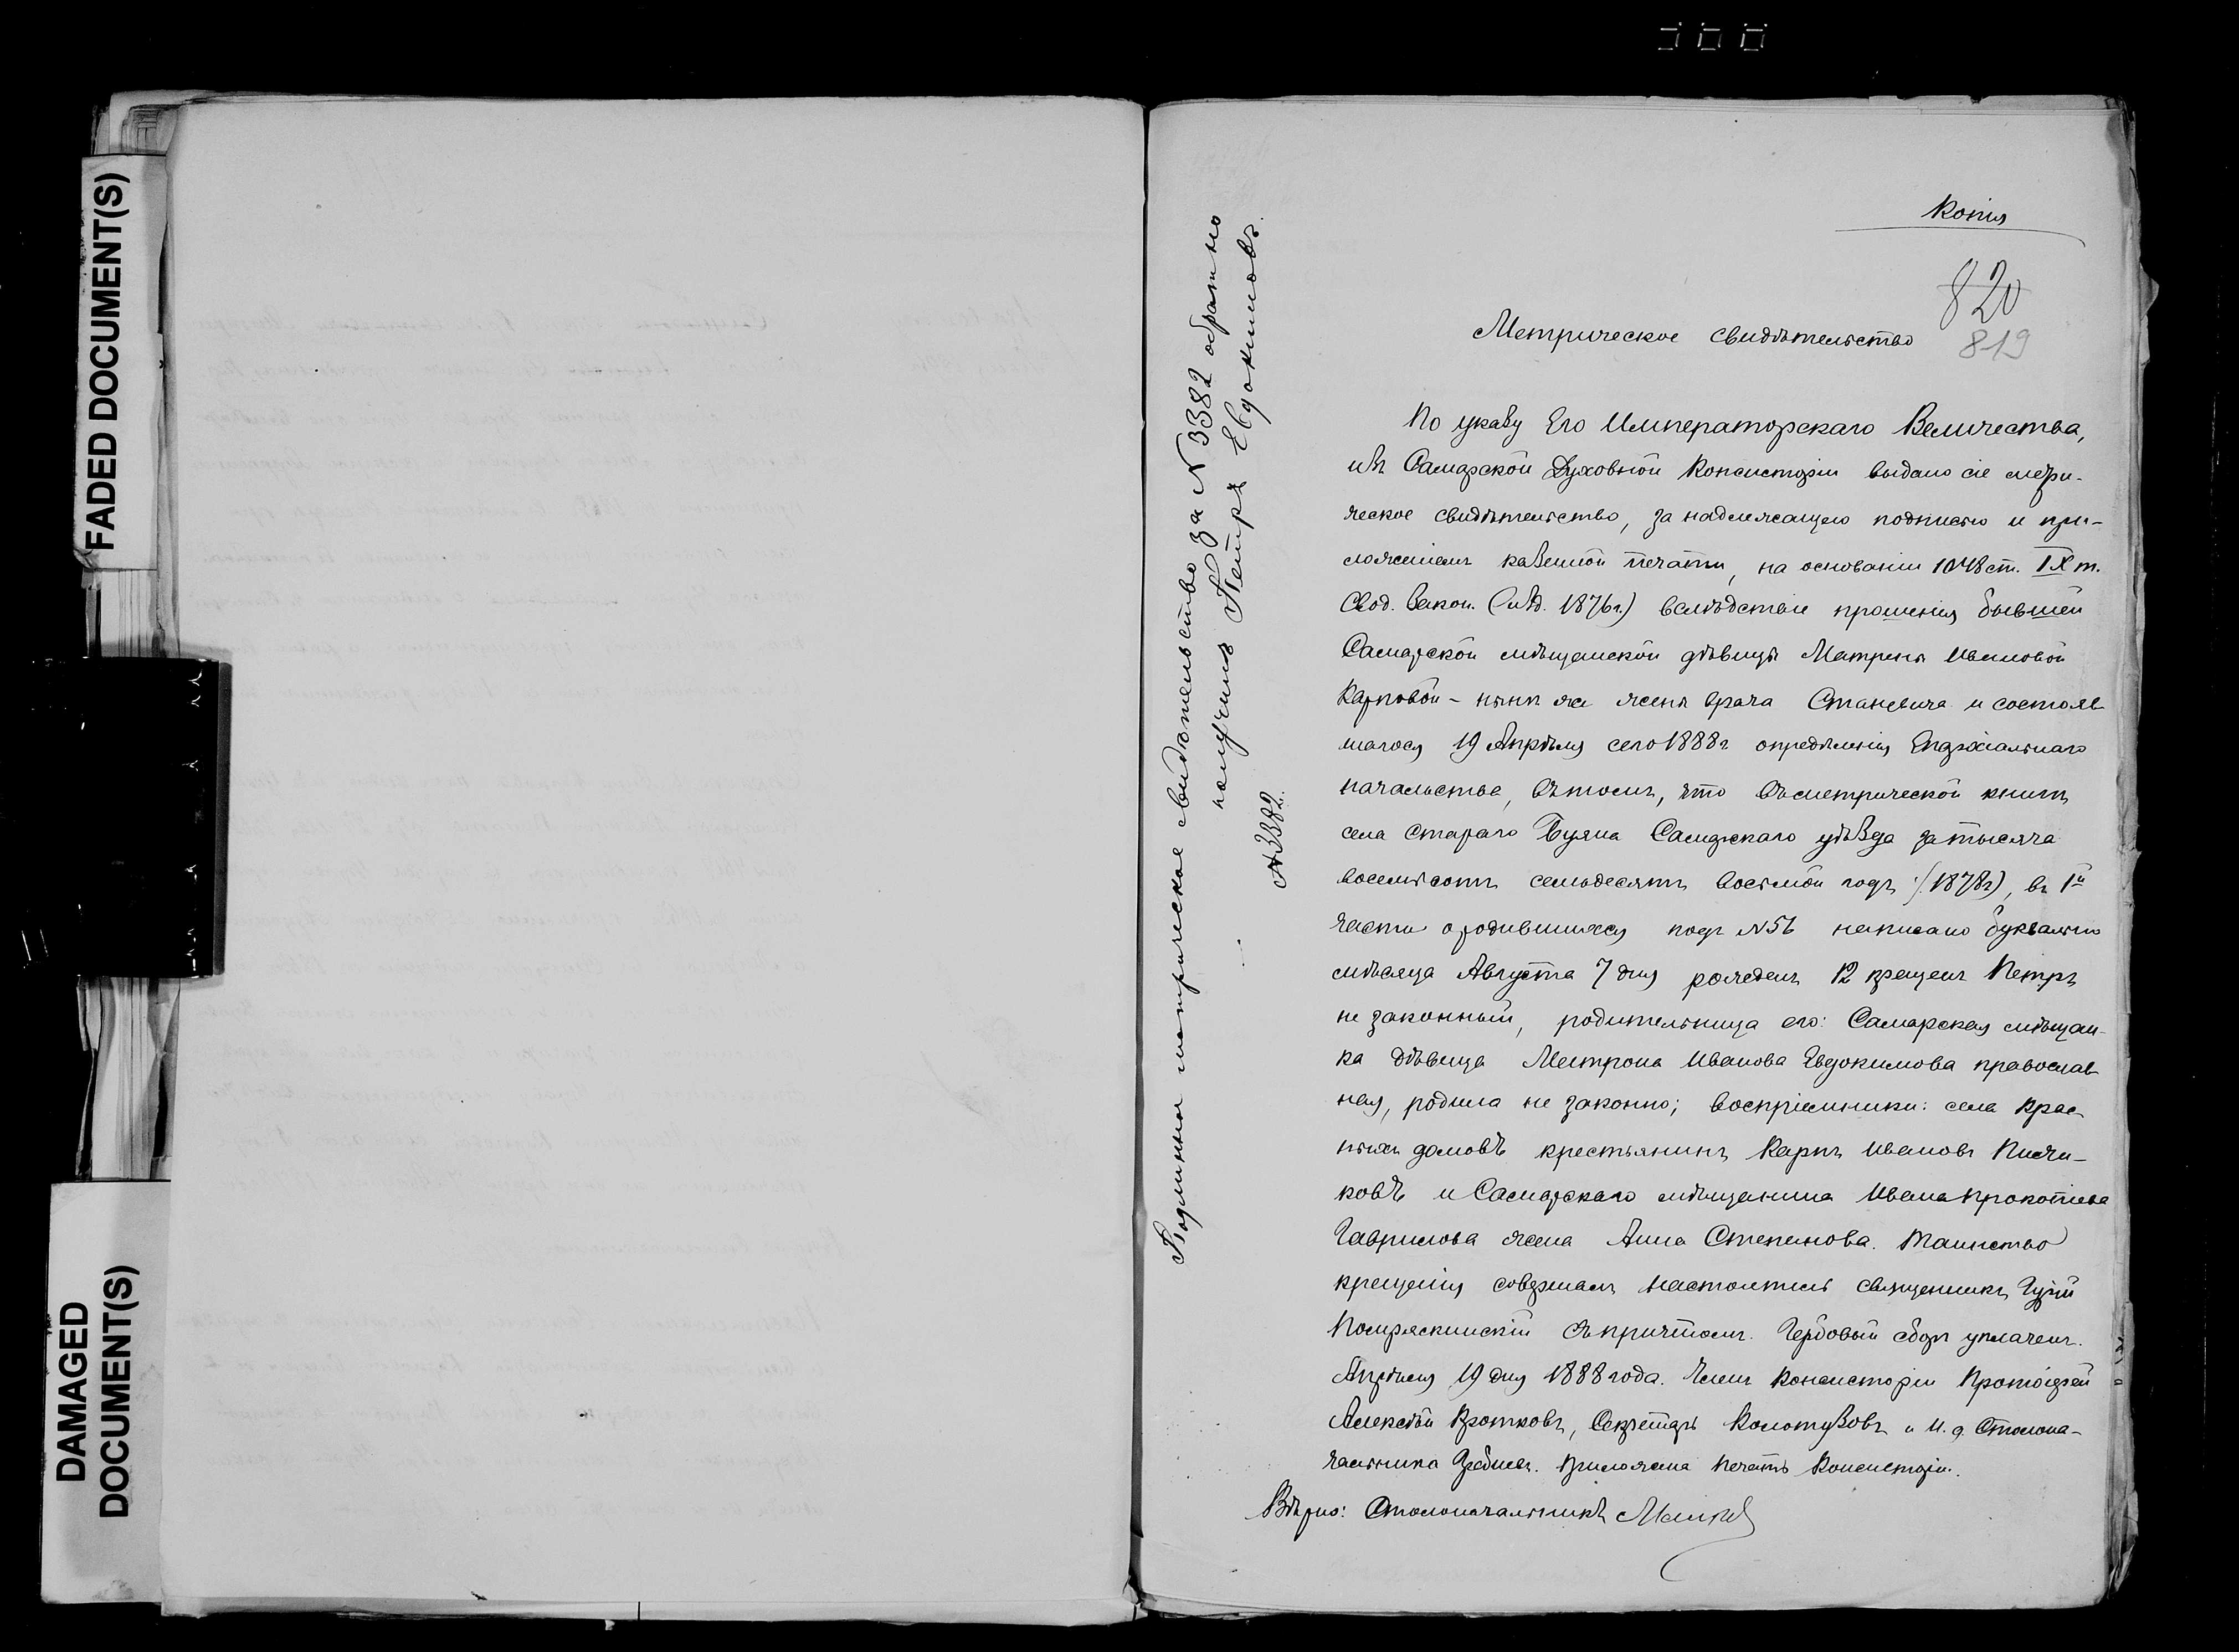 FADED DOCUMENT(S)
DAMAGED
DOCUMENT(S)
Копія
820
819
Метрическое свидѣтельство
По указу Его Императорскаго Величества,
изъ Самарской Духовной Консисторіи выдано сіе метри-
ческое свидѣтельство, за надлежащею подписью и при-
ложеніемъ казенной печати, на основаніи 1048 ст. IX т.
Свод. Закон. (изд. 1876 г.) вслѣдствіе прошенія бывшей
Самарской мѣщанской дѣвицы Матрены Ивановой
Карповой - нынѣ же жены врача Станевича и состояв
шагося 19 Апрѣля сего 1888 г. опредѣленія Епархіальнаго
начальства, въ томъ, что въ метрической книгѣ
села Стараго Буяна Самарскаго уѣзда за тысяча
восемьсотъ семьдесятъ восьмой годъ (1878 г), въ 1й
части о родившихся подъ №56 написано буквально
мѣсяца Августа 7 дня рожденъ 12 крещенъ Петръ
не законный, родительница его: Самарская мѣщан-
ка дѣвица Матрона Иванова Евдокимова православ
ная, родила не законно; воспріемники: села Крас-
ныхъ домовъ крестьянинъ Карпъ Ивановъ
ковъ и Самарскаго мѣщанина Ивана Прокопіева
Гаврилова жена Анна Степанова. Таинство
крещенія совершалъ настоятель священникъ Гурій
Помряскинскій съ причтомъ. Гербовый сборъ уплаченъ.
Апрѣля 19 дня 1888 года. Членъ Консисторіи Протоіерей
Алексѣй Кротковъ, Секретарь Колотузовъ и И. д. Столона-
чальника Приложена печать Консисторіи.
Вѣрно: Столоначальникъ
Подлинное метрическое свидѣтельство за № 3382 обратно
получилъ Петръ Евдокимовъ.
№3382.